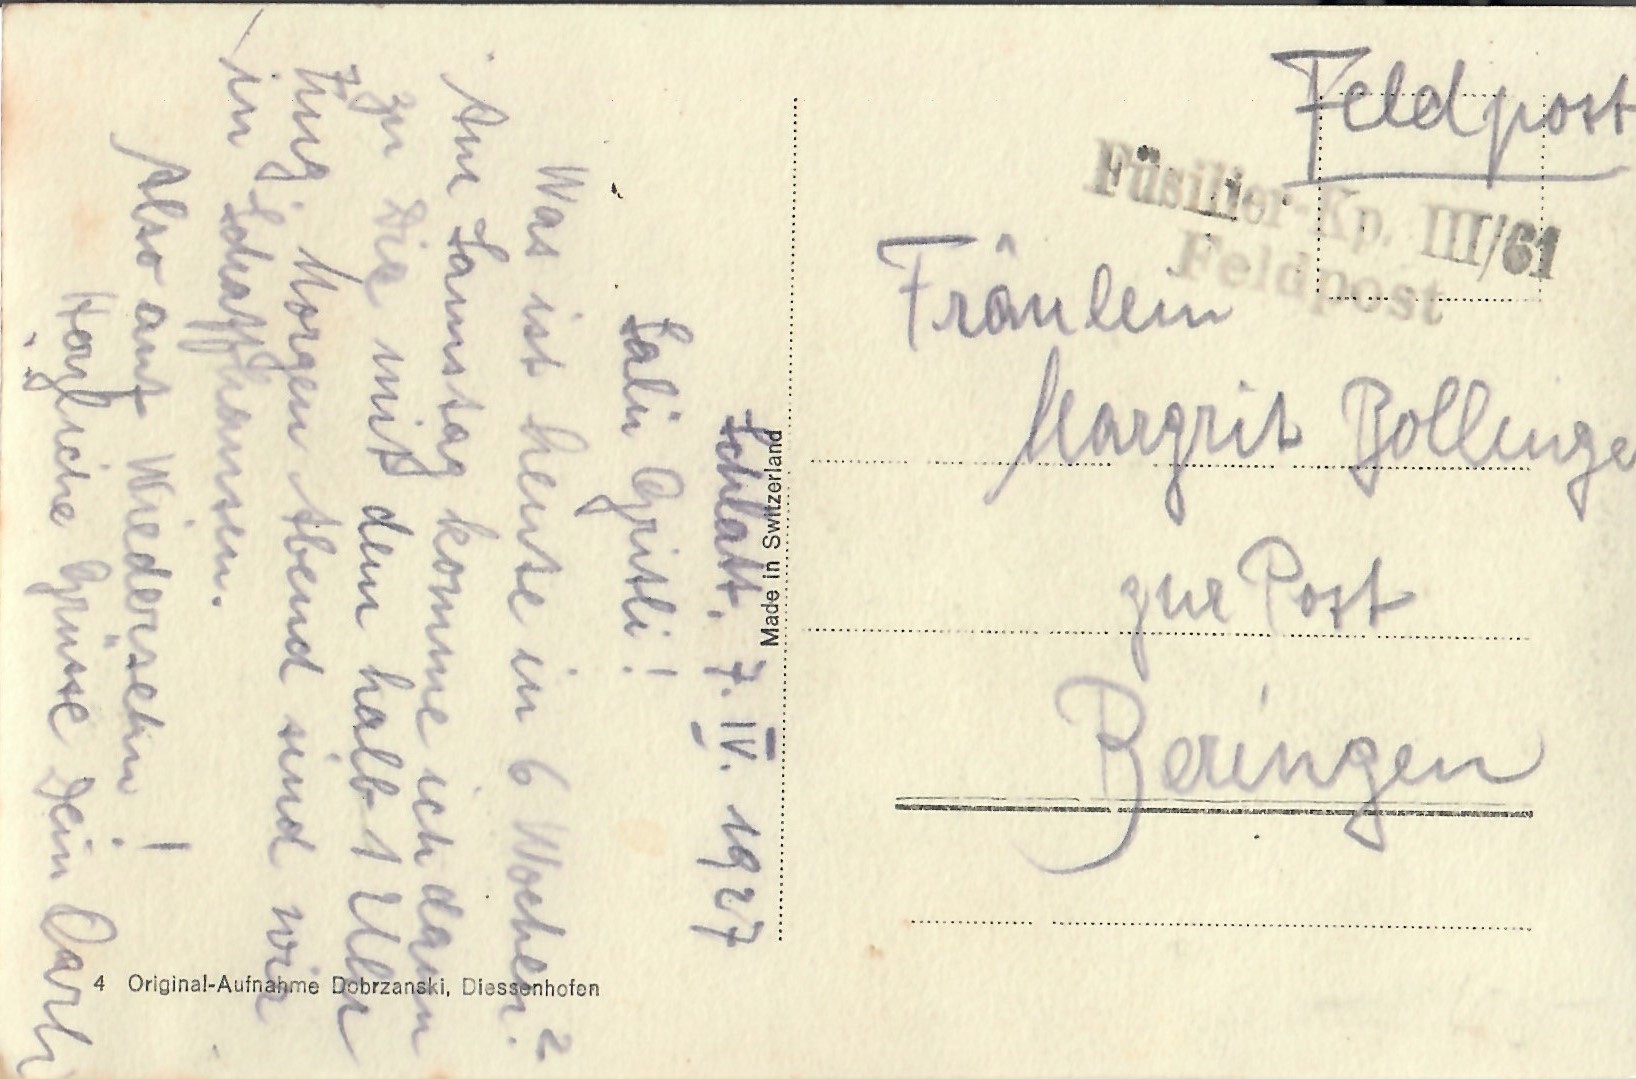 Schlatt. 7. IV. 1927
Salü Gritli!
Was ist heute in 6 Wochen?
Am Samstag komme ich dann
zu Dir mit dem halb 1 Uhr
Zug. Morgen Abend sind wir
in Schaffhausen.
Also auf Wiedersehn!
Herzliche Grüsse Dein Carli
4 Original-Aufnahme Dobrzanski, Diessenhofen
Made in Switzerland
Feldpost
Füsilier-Kp. III/61
Feldpost
Fräulein
Margrit Bollinge
zur Post
Beringen